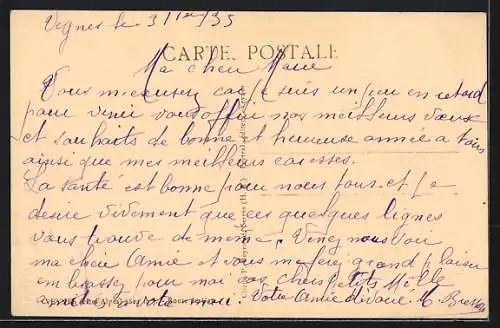 Veynes le 3 1ier/35
CARTE POSTALE
Ma chere Marie
Vous m'excuserez car je suis un peu en retard
pour venir vous offrir nos meilleurs vœux
et souhaits de bonne et heureuse année a tous
ainsi que mes meilleurs caresses.
La santé est bonne pour nous tous et je
desire vivement que ces quelques lignes
vous trouve de meme. Venez nous voir
ma chere Amie et vous me ferez grand plaisir
embrassez pour moi vos chers petits
de votre mari Votre Amie devouée